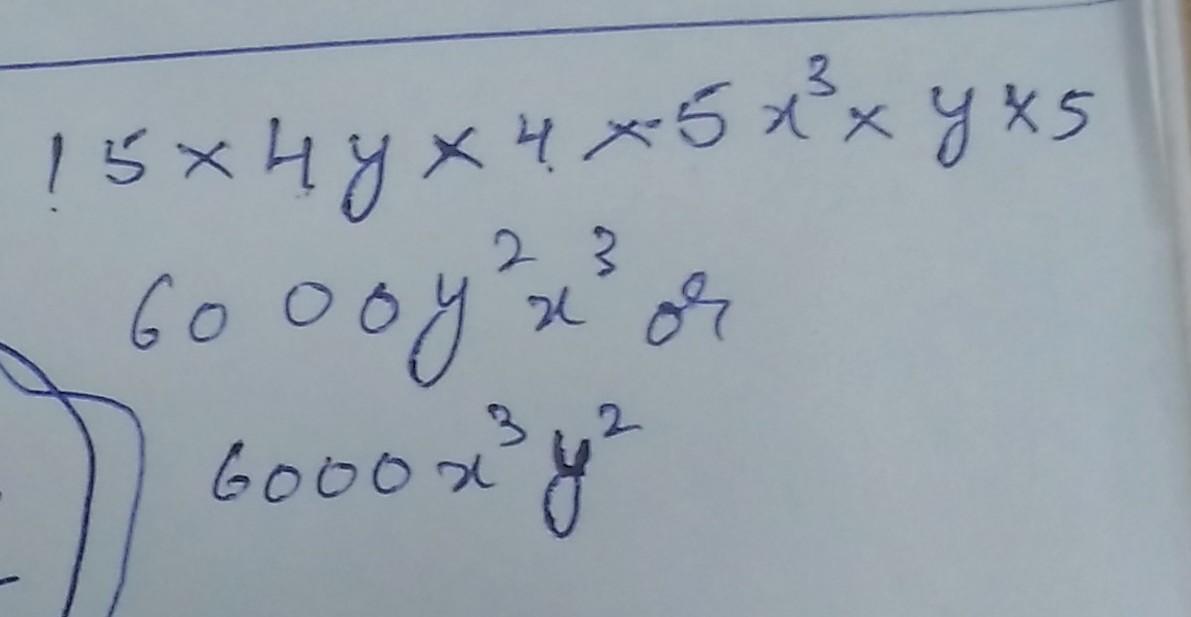 15 × 4y × 4 × 5x³ × y × 5
6000y²x³ or
6000x³y²